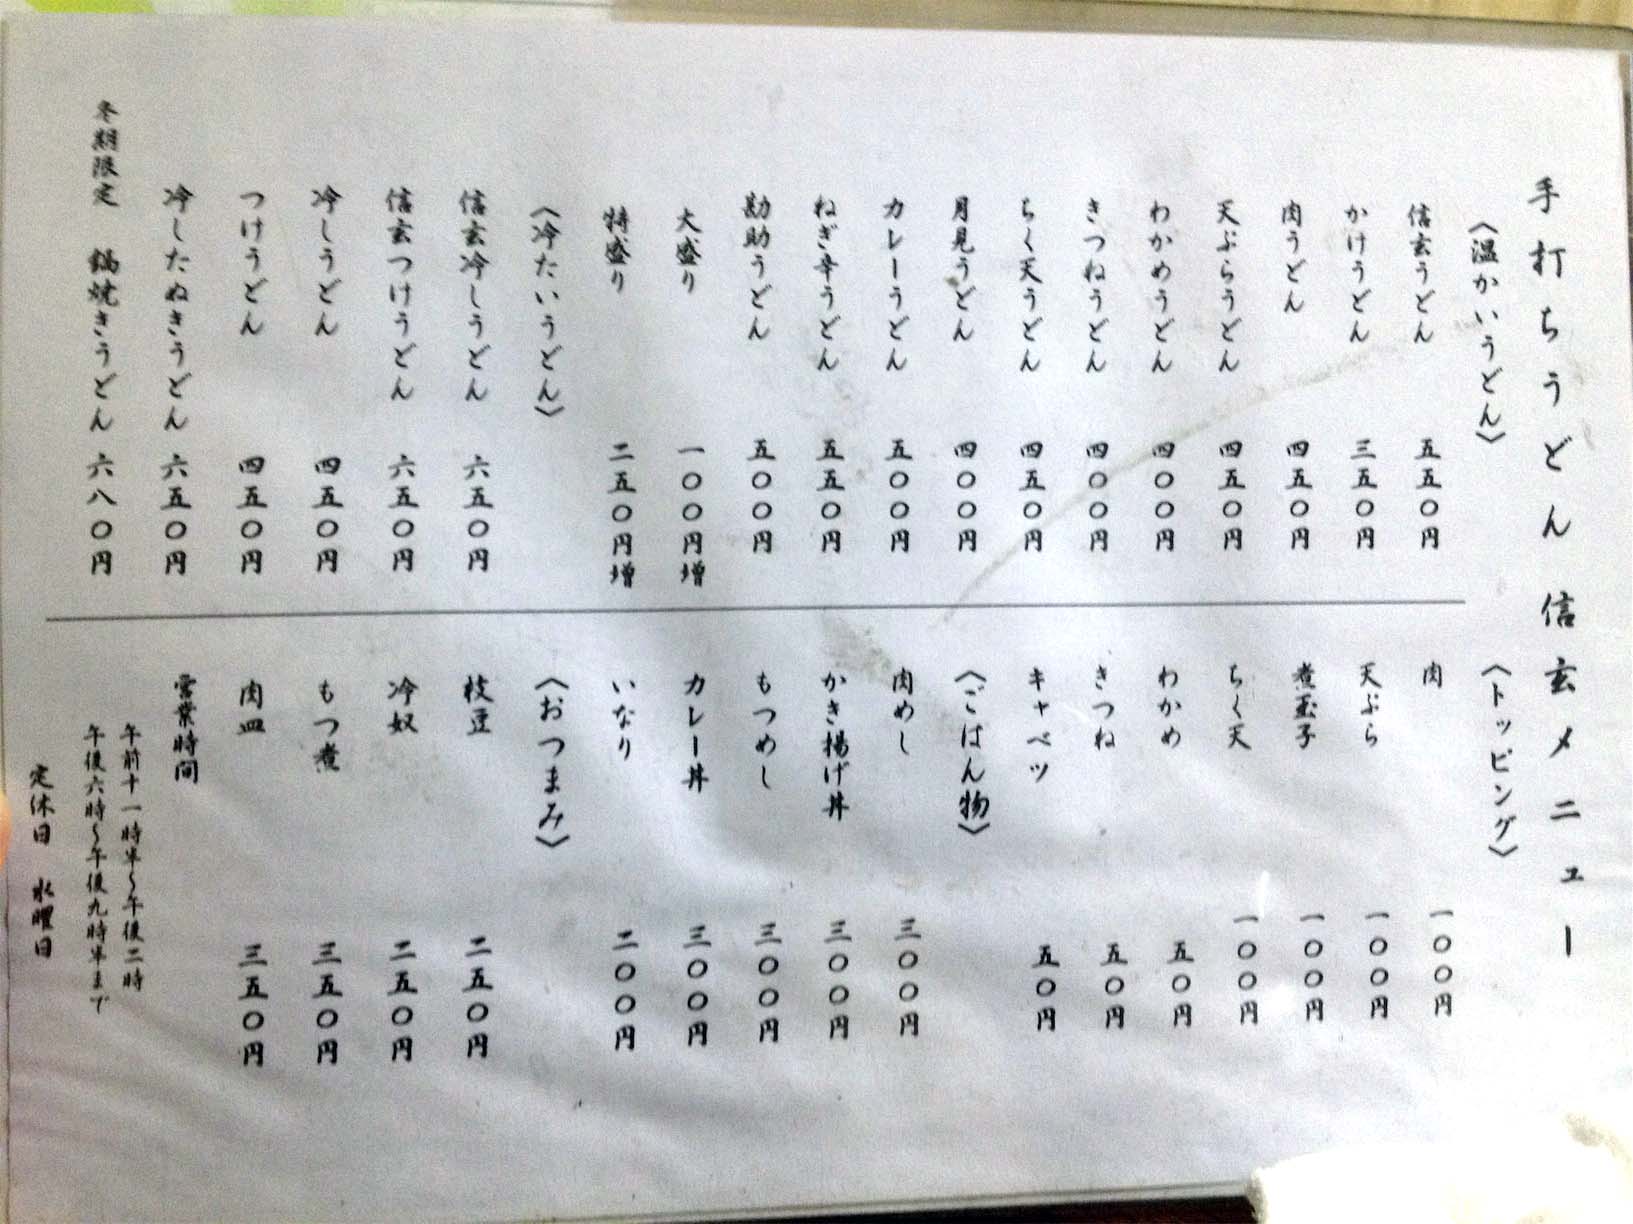 手打ちうどん信玄メニュー
〈温かいうどん〉
信玄うどん 五五〇円
かけうどん 三五〇円
肉うどん 四五〇円
天ぷらうどん 四五〇円
わかめうどん 四〇〇円
きつねうどん 四〇〇円
ちく天うどん 四五〇円
月見うどん 四〇〇円
カレーうどん 五〇〇円
ねぎ辛うどん 五五〇円
勘助うどん 五〇〇円
大盛り 一〇〇円増
特盛り 二五〇円増
〈冷たいうどん〉
信玄冷しうどん 六五〇円
信玄つけうどん 六五〇円
冷しうどん 四五〇円
つけうどん 四五〇円
冷したぬきうどん 六五〇円
冬期限定 鍋焼きうどん 六八〇円
〈トッピング〉
肉 一〇〇円
天ぷら 一〇〇円
煮玉子 一〇〇円
ちく天 一〇〇円
わかめ 五〇円
きつね 五〇円
キャベツ 五〇円
〈ごはん物〉
肉めし 三〇〇円
かき揚げ丼 三〇〇円
もつめし 三〇〇円
カレー丼 三〇〇円
いなり 二〇〇円
〈おつまみ〉
枝豆 二五〇円
冷奴 二五〇円
もつ煮 三五〇円
肉皿 三五〇円
営業時間
午前十一時半〜午後二時
午後六時〜午後九時半まで
定休日 水曜日